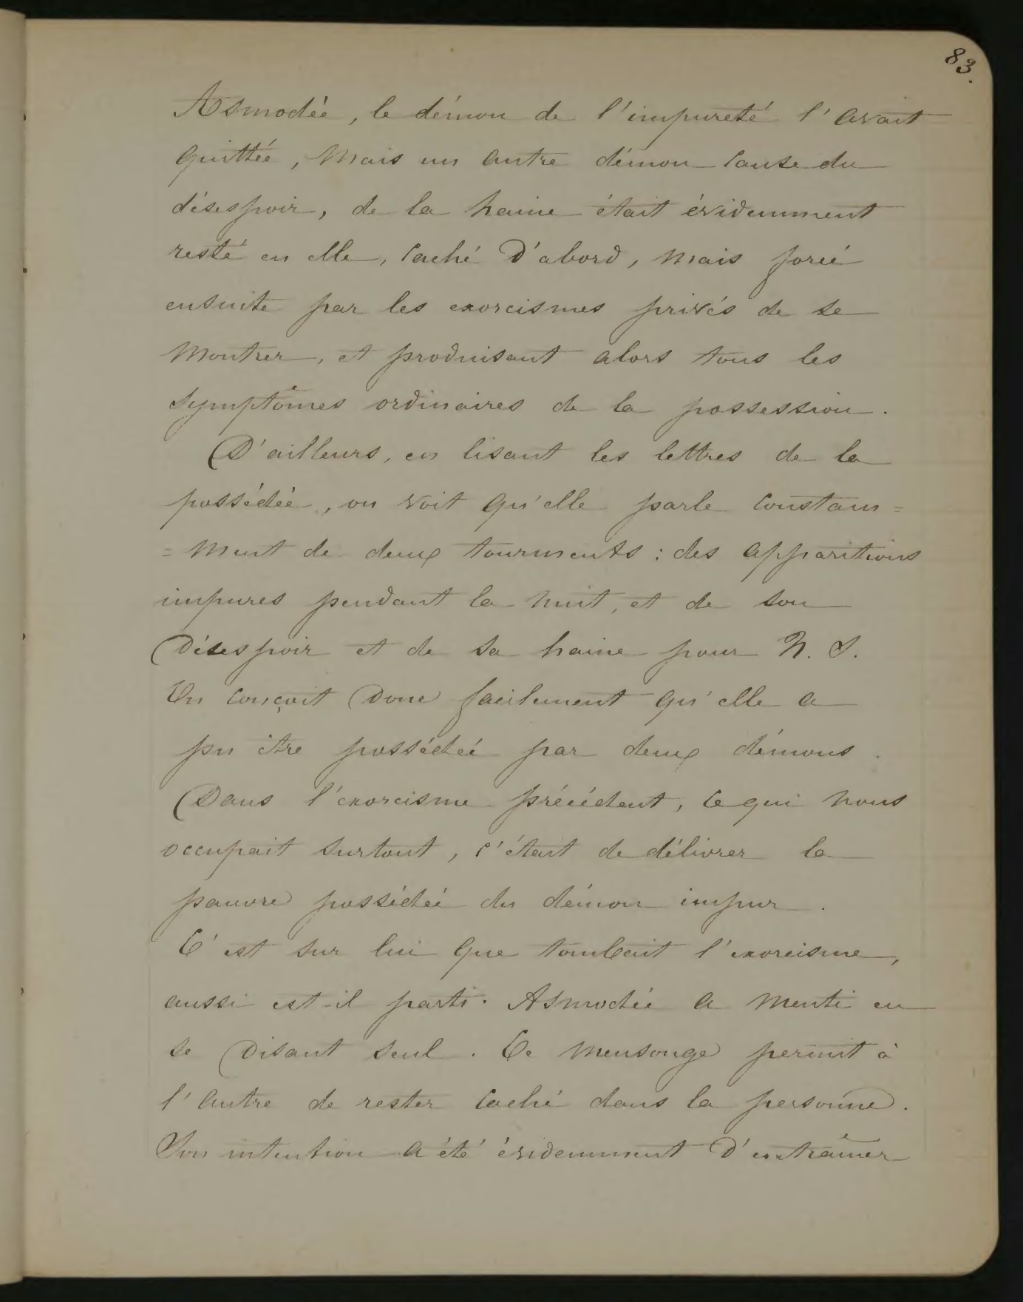 83.
Asmodée, le démon de l'impureté l'avait
quittée, mais un autre démon cause du
désespoir, de la haine était évidemment
resté en elle, caché d'abord, mais forcé
ensuite par les exorcismes privés de se
montrer, et produisant alors tous les
symptômes ordinaires de la possession.
D'ailleurs, en lisant les lettres de la
possédée, on voit qu'elle parle constam=
=ment de deux tourments : des apparitions
impures pendant la nuit, et de son
désespoir et de sa haine pour N. S.
On conçoit donc facilement qu'elle a
pu être possédée par deux démons.
Dans l'exorcisme précédent, ce qui nous
occupait surtout, c'était de délivrer la
pauvre possédée du démon impur.
C'est sur lui que tombait l'exorcisme,
aussi est-il parti. Asmodée a menti en
se disant seul. Ce mensonge permit à
l'autre de rester caché dans la personne.
Son intention a été évidemment d'entraîner